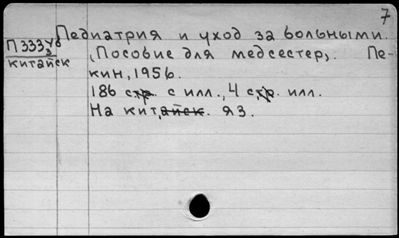 7
Педиатрия и уход за больными.
П333уб
3
китайск
(Пособие для медсестер). Пе-
кин, 1956.
186 стр. с илл., 4 стр. илл.
На китайск. яз.